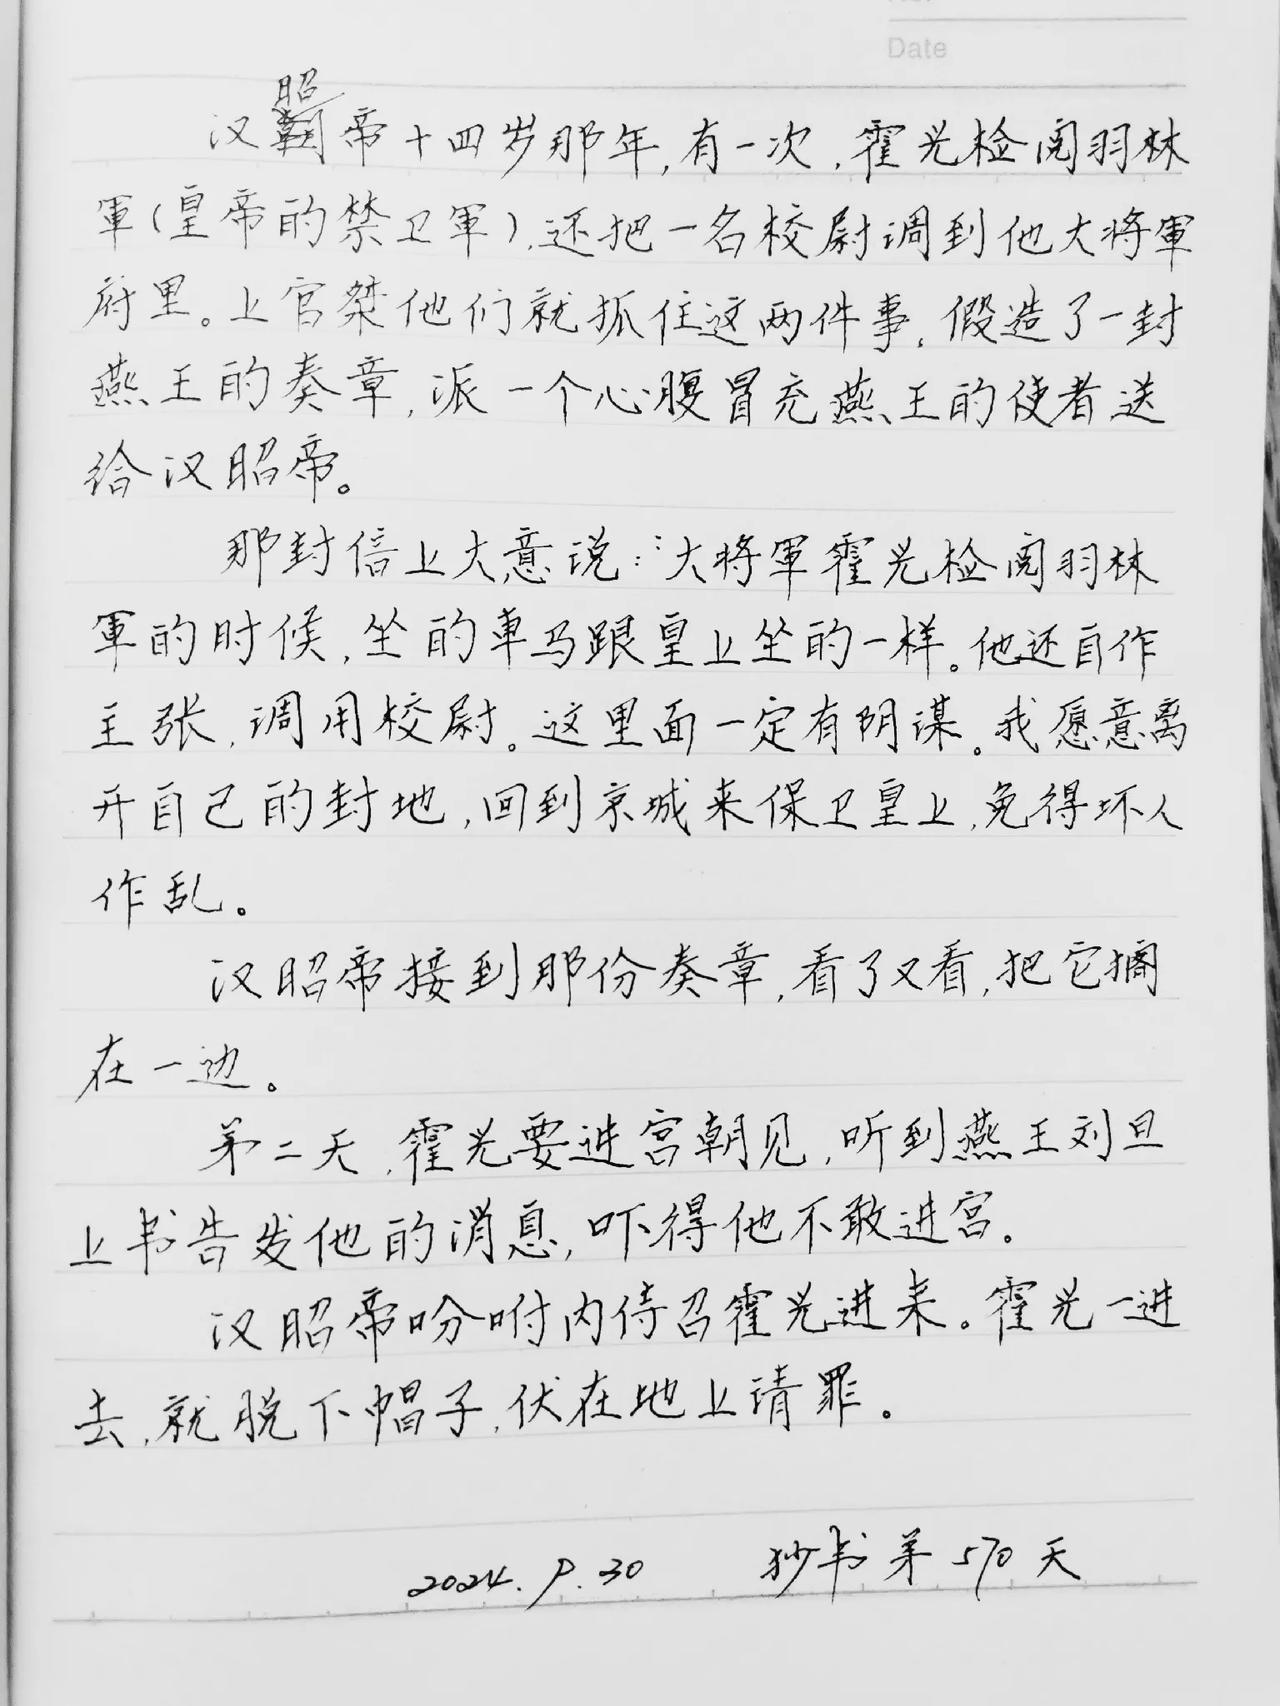 Date
汉昭帝十四岁那年,有一次,霍光检阅羽林
軍(皇帝的禁卫軍),还把一名校尉调到他大将軍
府里。上官桀他们就抓住这两件事,假造了一封
燕王的奏章,派一个心腹冒充燕王的使者送
给汉昭帝。
那封信上大意说:大将軍霍光检阅羽林
軍的时候,坐的車马跟皇上坐的一样。他还自作
主张,调用校尉。这里面一定有阴谋。我愿意离
开自己的封地,回到京城来保卫皇上,免得坏人
作乱。
汉昭帝接到那份奏章,看了又看,把它搁
在一边。
第二天,霍光要进宫朝见,听到燕王刘旦
上书告发他的消息,吓得他不敢进宫。
汉昭帝吩咐内侍召霍光进来。霍光一进
去,就脱下帽子,伏在地上请罪。
2024.9.30 抄书第570天